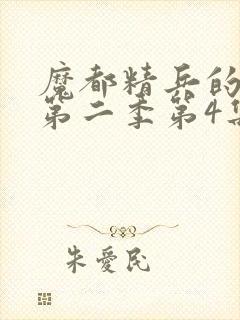 魔都精兵的
第二季第4集
朱愛民